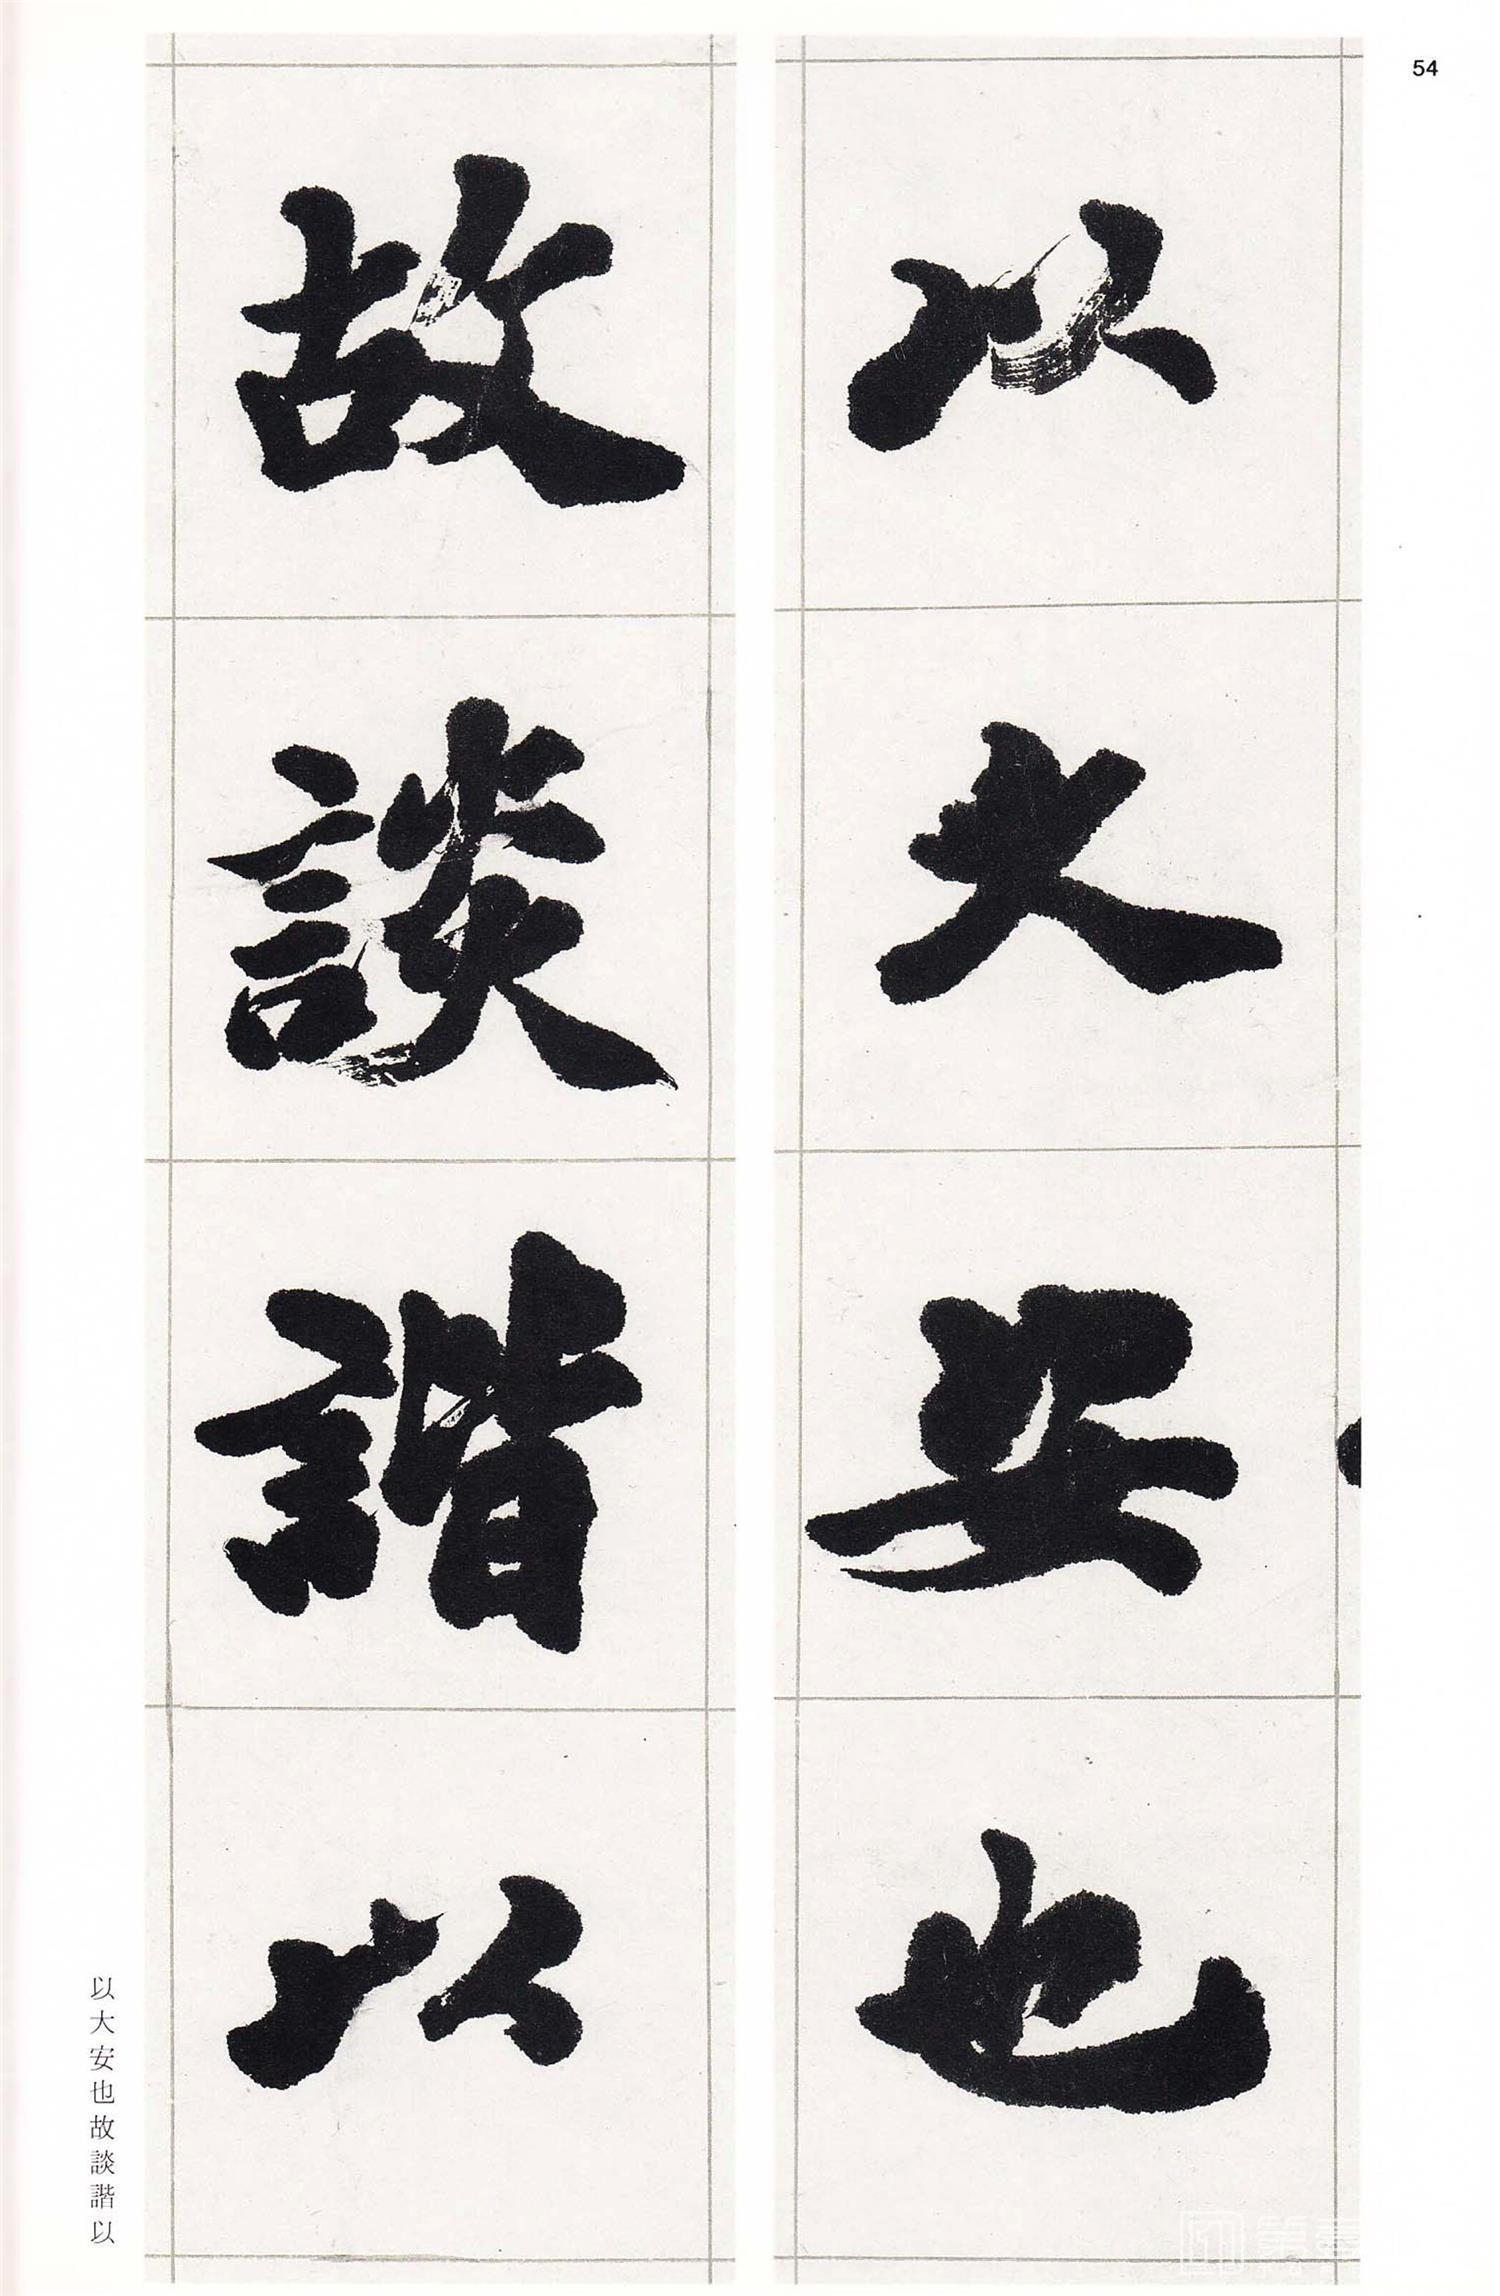 54
以大安也
故談諧以
以大安也故談諧以